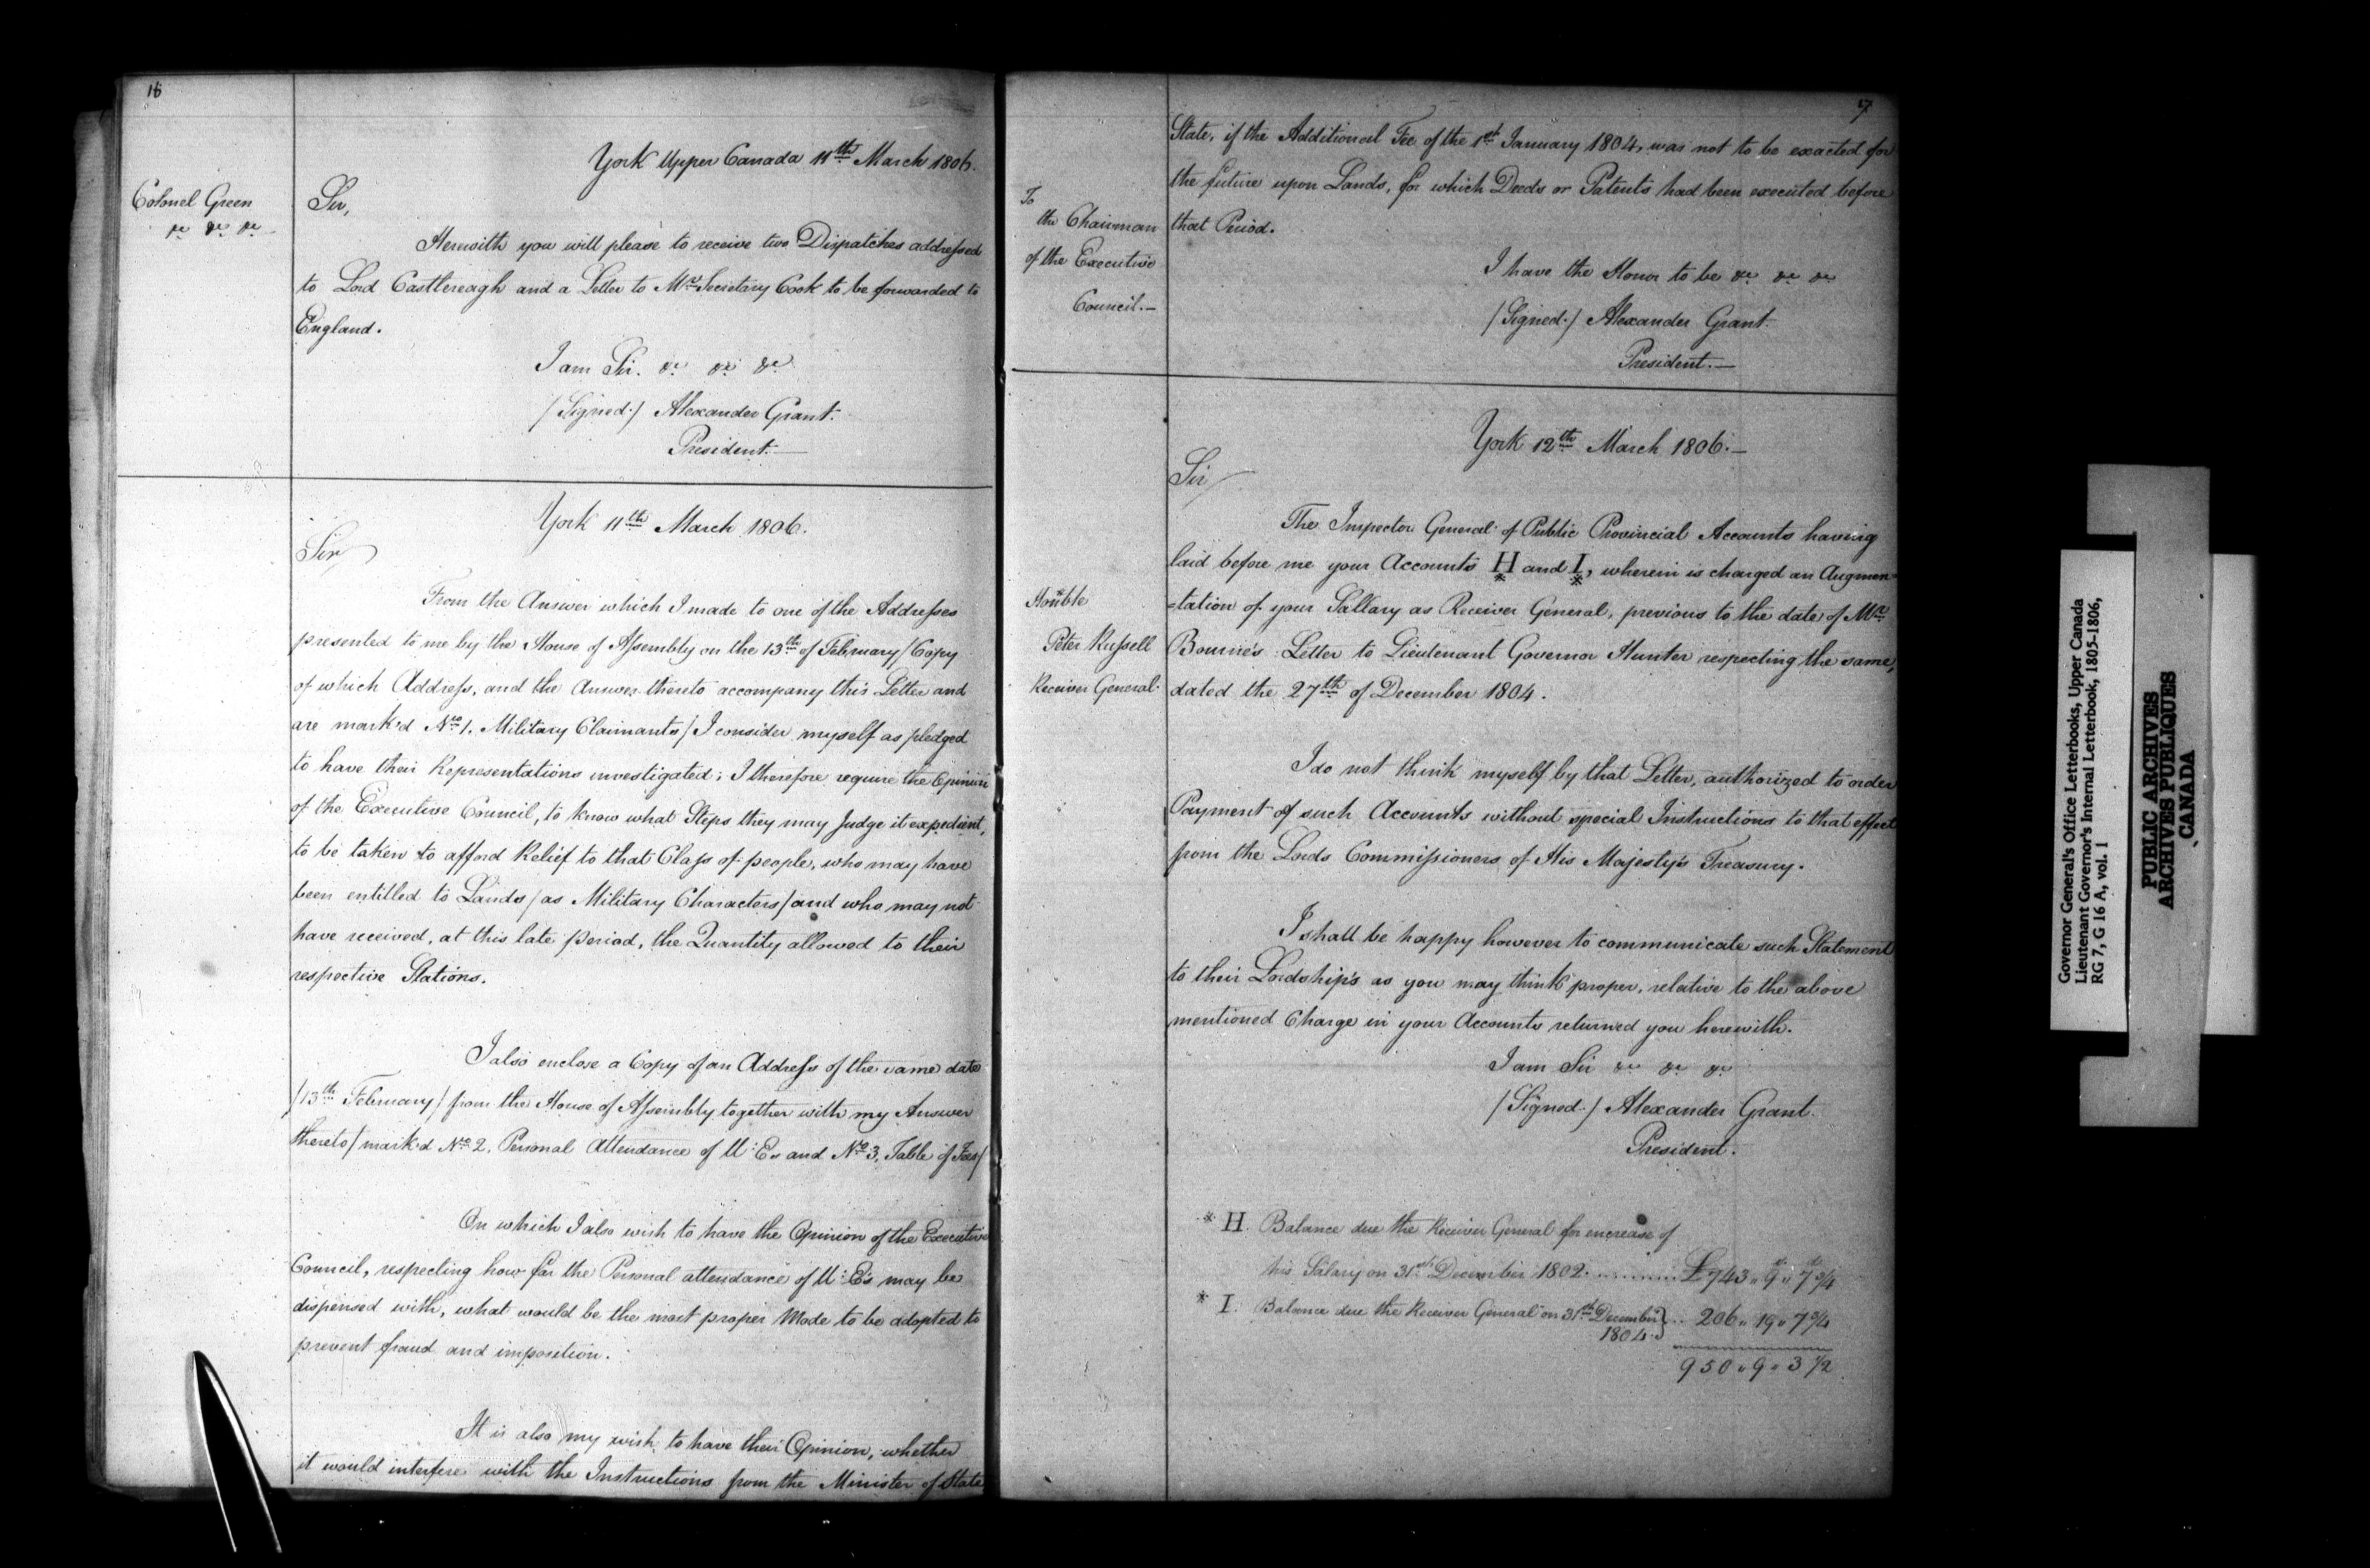 16
York Upper Canada 11th March 1806.
Colonel Green
&c &c &c
Sir,
Herewith you will please to receive two Dispatches addressed
to Lord Castlereagh and a Letter to Mr. Secretary Cook to be forwarded to
England.
I am Sir. &c &c &c
/Signed./ Alexander Grant.
President.
York 11th March 1806.
Sir
From the Answer which I made to one of the Addresses
presented to me by the House of Assembly on the 13th of February /Copy
of which Address, and the Answer thereto accompany this Letter and
are mark'd No. 1. Military Claimants/ I consider myself as pledged
to have their Representations investigated; I therefore require the Opinion
of the Executive Council, to know what Steps they may Judge it expedient,
to be taken to afford Relief to that Class of people, who may have
been entitled to Lands /as Military Characters/ and who may not
have received, at this late period, the Quantity allowed to their
respective Stations.
I also enclose a Copy of an Address of the same date
/13th February/ from the House of Assembly together with my Answer
thereto /mark'd No. 2. Personal Attendance of U:Es and No. 3. Table of Fees/
On which I also wish to have the Opinion of the Executive
Council, respecting how far the Personal attendance of U:E's may be
dispensed with, what would be the most proper Mode to be adopted to
prevent fraud and imposition.
It is also my wish to have their Opinion, whether
it would interfere with the Instructions from the Minister of State
17
State, if the Additional Fee of the 1st January 1804, was not to be exacted for
the future upon Lands, for which Deeds or Patents had been executed before
that Period.
To
the Chairman
of the Executive
Council.—
I have the Honor to be &c &c &c
/Signed./ Alexander Grant.
President.—
York 12th March 1806.—
Sir
The Inspector General of Public Provincial Accounts having
laid before me your Accounts H and I, wherein is charged an Augmen=
=tation of your Sallary as Receiver General, previous to the date of Mr.
Bourne's Letter to Lieutenant Governor Hunter respecting the same,
dated the 27th of December 1804.
Honble
Peter Russell
Receiver General.
I do not think myself by that Letter, authorized to order
Payment of such Accounts without special Instructions to that effect
from the Lords Commissioners of His Majesty's Treasury.
I shall be happy however to communicate such Statement
to their Lordship's as you may think proper, relative to the above
mentioned Charge in your Accounts returned you herewith.
I am Sir &c &c &c
/Signed./ Alexander Grant.
President.
* H. Balance due the Receiver General for encrease of
his Salary on 31st December 1802. .......... £743 " 9 " 7 3/4
* I. Balance due the Receiver General on 31st December
1804 } .. 206 " 19 " 7 3/4
950 " 9 " 3 1/2
Governor General's Office Letterbooks, Upper Canada
Lieutenant Governor's Internal Letterbook, 1805-1806,
RG 7, G 16 A, vol. 1
PUBLIC ARCHIVES
ARCHIVES PUBLIQUES
CANADA